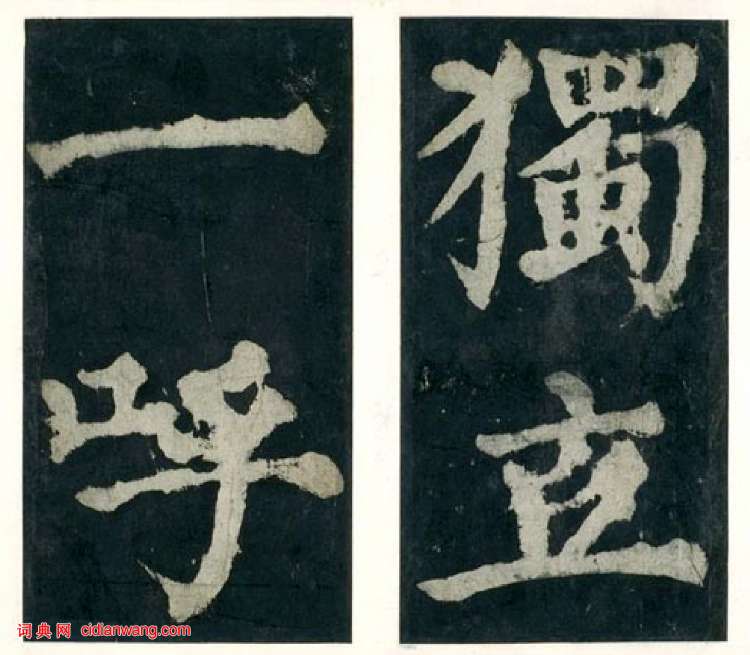 獨立
一呼
词典网 cidianwang.com